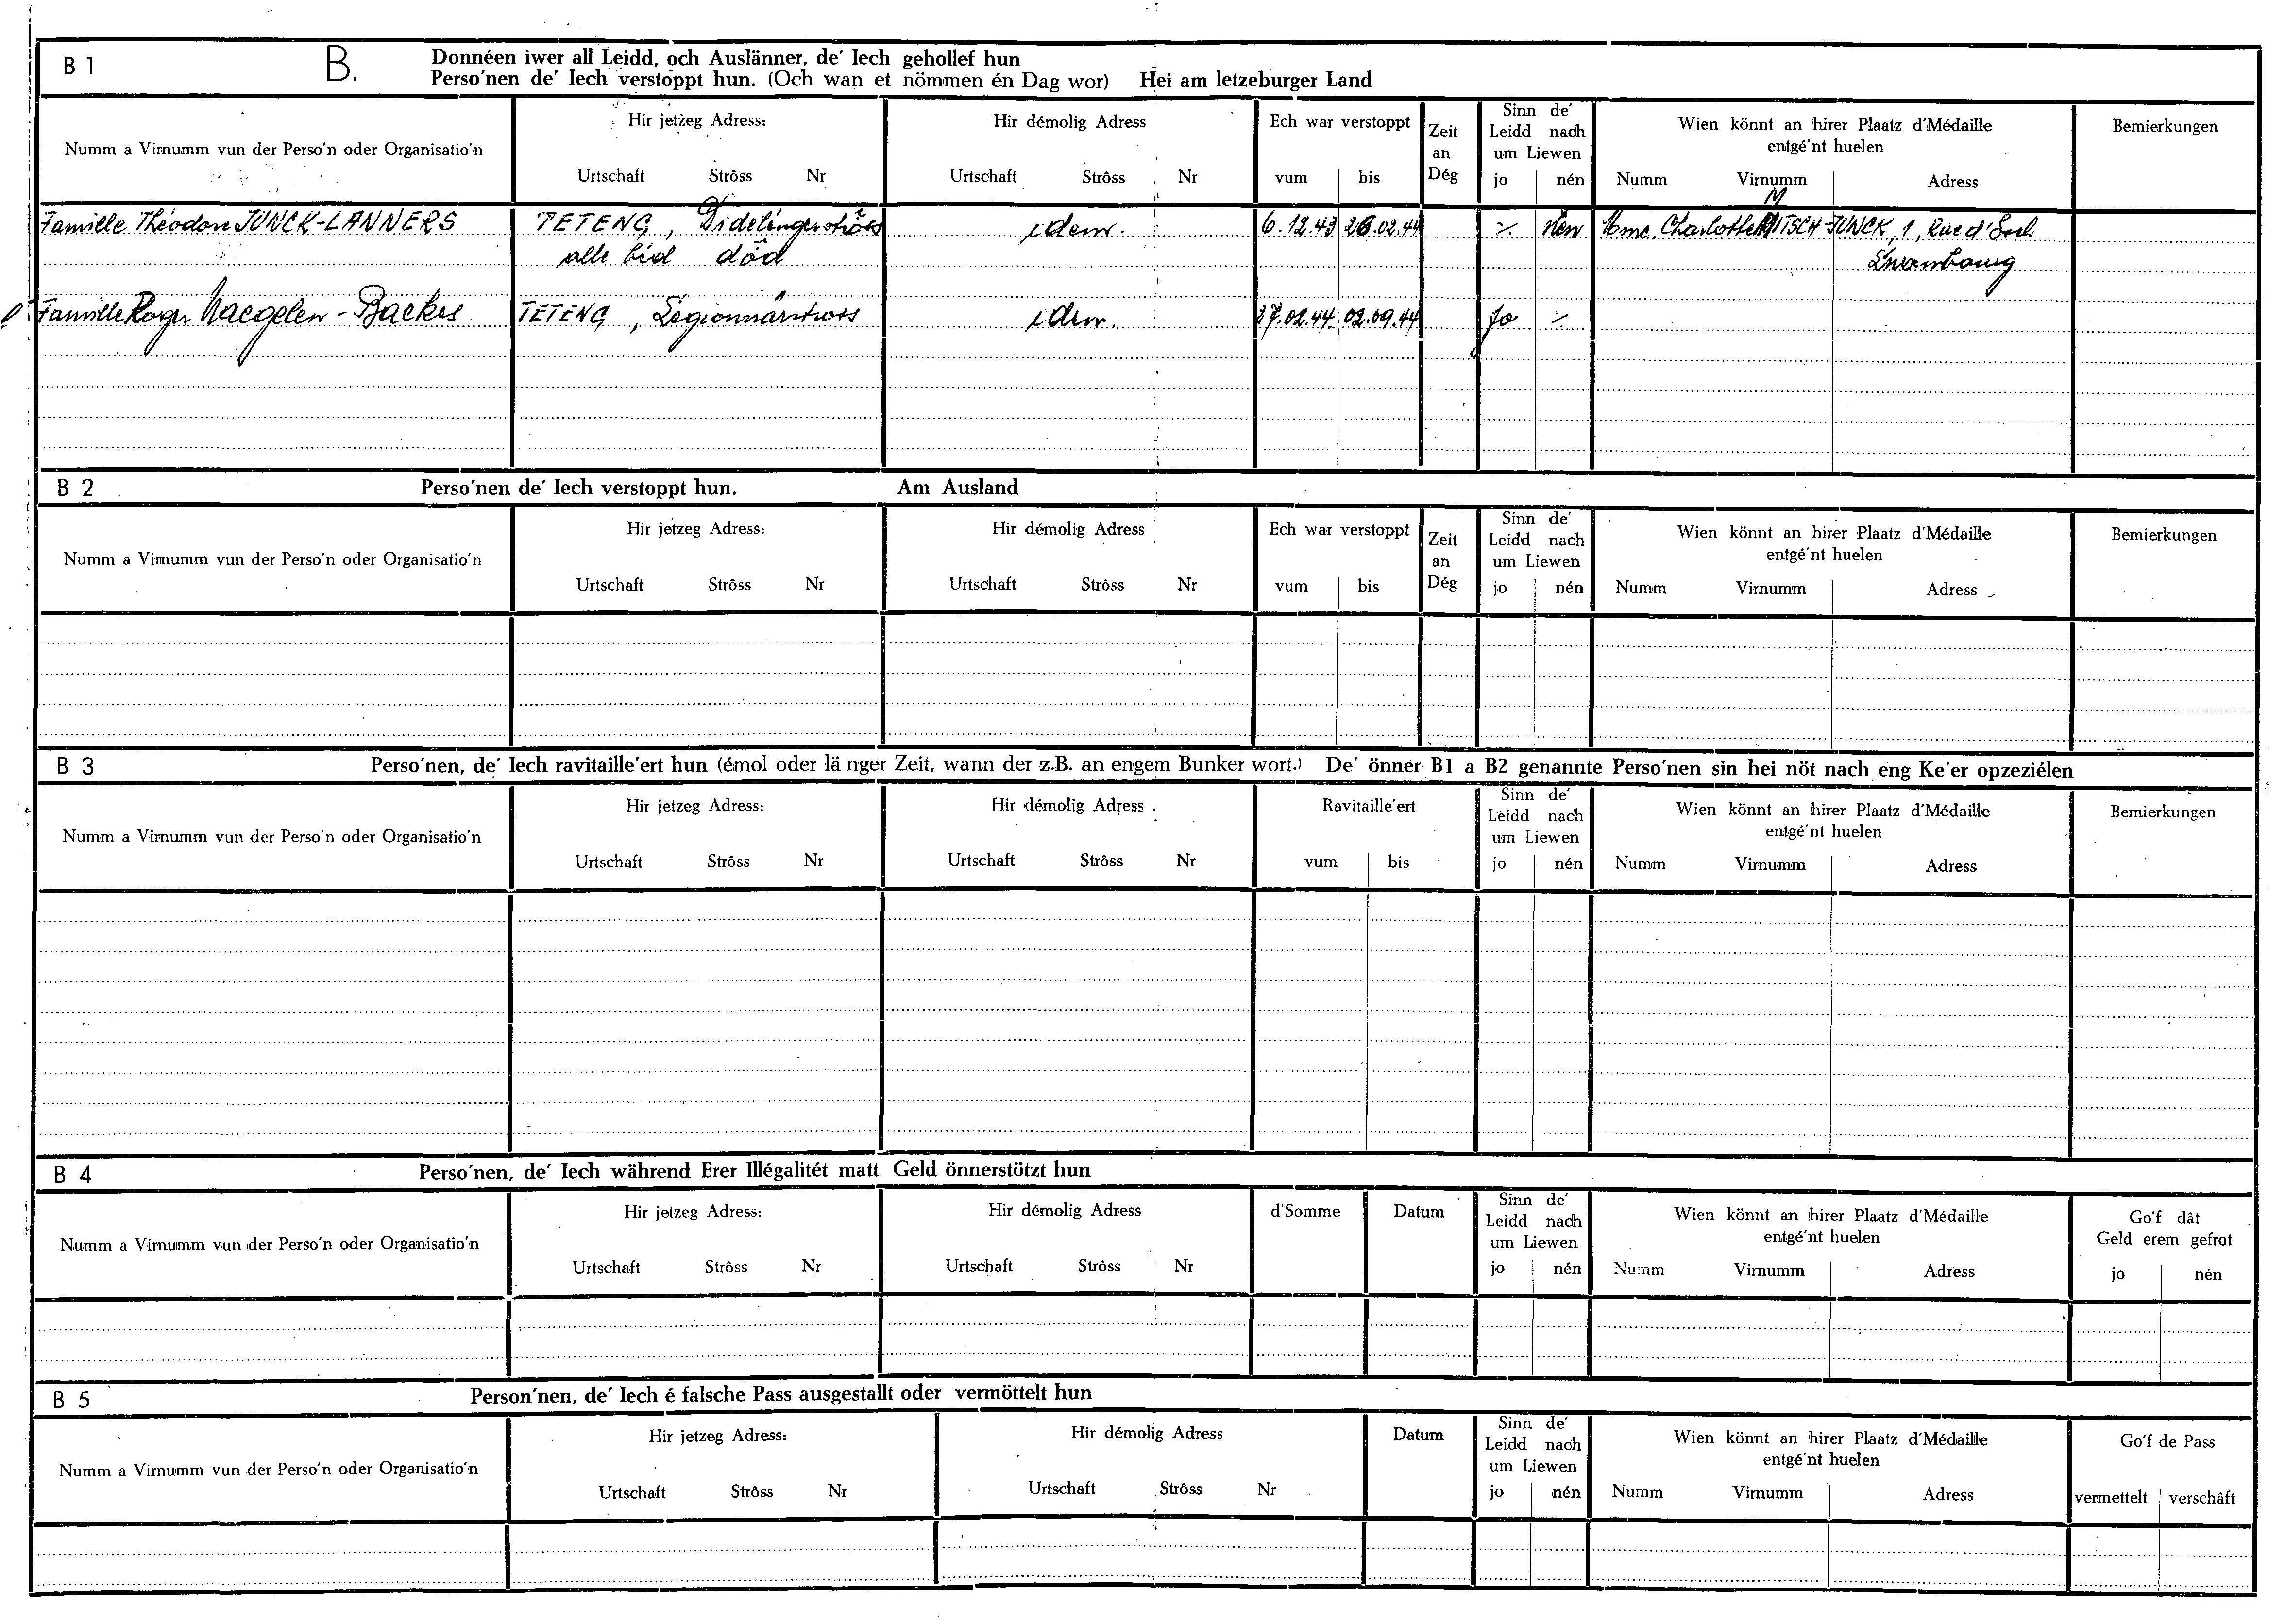 B 1 B. Donnéen iwer all Leidd, och Auslänner, de' Iech gehollef hun
Perso'nen de' Iech verstoppt hun. (Och wan et nömmen én Dag wor) Hei am letzeburger Land
Numm a Virnumm vun der Perso'n oder Organisatio'n
Hir jetzeg Adress:
Urtschaft Strôss Nr
Hir démolig Adress
Urtschaft Strôss Nr
Ech war verstoppt
vum bis
Zeit
an
Dég
Sinn de'
Leidd nach
um Liewen
jo nén
Wien könnt an hirer Plaatz d'Médaille
entgé'nt huelen
Numm Virnumm Adress
Bemierkungen
Famille Théodore JUNCK-LANNERS TETENG, Didelingerströss idem. 6.12.43 26.02.44 nén Mme. Charlotte MITSCH-JUNCK, 1, Rue d'
alle béid död Luxembourg
Famille Roger Naegelen-Backes TETENG, Légionnärstross idem. 27.02.44 02.09.44 jo
B 2 Perso'nen de' Iech verstoppt hun. Am Ausland
Numm a Virnumm vun der Perso'n oder Organisatio'n
Hir jetzeg Adress:
Urtschaft Strôss Nr
Hir démolig Adress
Urtschaft Strôss Nr
Ech war verstoppt
vum bis
Zeit
an
Dég
Sinn de'
Leidd nach
um Liewen
jo nén
Wien könnt an hirer Plaatz d'Médaille
entgé'nt huelen
Numm Virnumm Adress
Bemierkungen
B 3 Perso'nen, de' Iech ravitaille'ert hun (émol oder länger Zeit, wann der z.B. an engem Bunker wort.) De' önner B1 a B2 genannte Perso'nen sin hei nöt nach eng Ke'er opzeziélen
Numm a Virnumm vun der Perso'n oder Organisatio'n
Hir jetzeg Adress:
Urtschaft Strôss Nr
Hir démolig Adress
Urtschaft Strôss Nr
Ravitaille'ert
vum bis
Sinn de'
Leidd nach
um Liewen
jo nén
Wien könnt an hirer Plaatz d'Médaille
entgé'nt huelen
Numm Virnumm Adress
Bemierkungen
B 4 Perso'nen, de' Iech während Erer Illégalitét matt Geld önnerstötzt hun
Numm a Virnumm vun der Perso'n oder Organisatio'n
Hir jetzeg Adress:
Urtschaft Strôss Nr
Hir démolig Adress
Urtschaft Strôss Nr
d'Somme
Datum
Sinn de'
Leidd nach
um Liewen
jo nén
Wien könnt an hirer Plaatz d'Médaille
entgé'nt huelen
Numm Virnumm Adress
Go'f dât
Geld erem gefrot
jo nén
B 5 Person'nen, de' Iech é falsche Pass ausgestallt oder vermöttelt hun
Numm a Virnumm vun der Perso'n oder Organisatio'n
Hir jetzeg Adress:
Urtschaft Strôss Nr
Hir démolig Adress
Urtschaft Strôss Nr
Datum
Sinn de'
Leidd nach
um Liewen
jo nén
Wien könnt an hirer Plaatz d'Médaille
entgé'nt huelen
Numm Virnumm Adress
Go'f de Pass
vermettelt verschâft